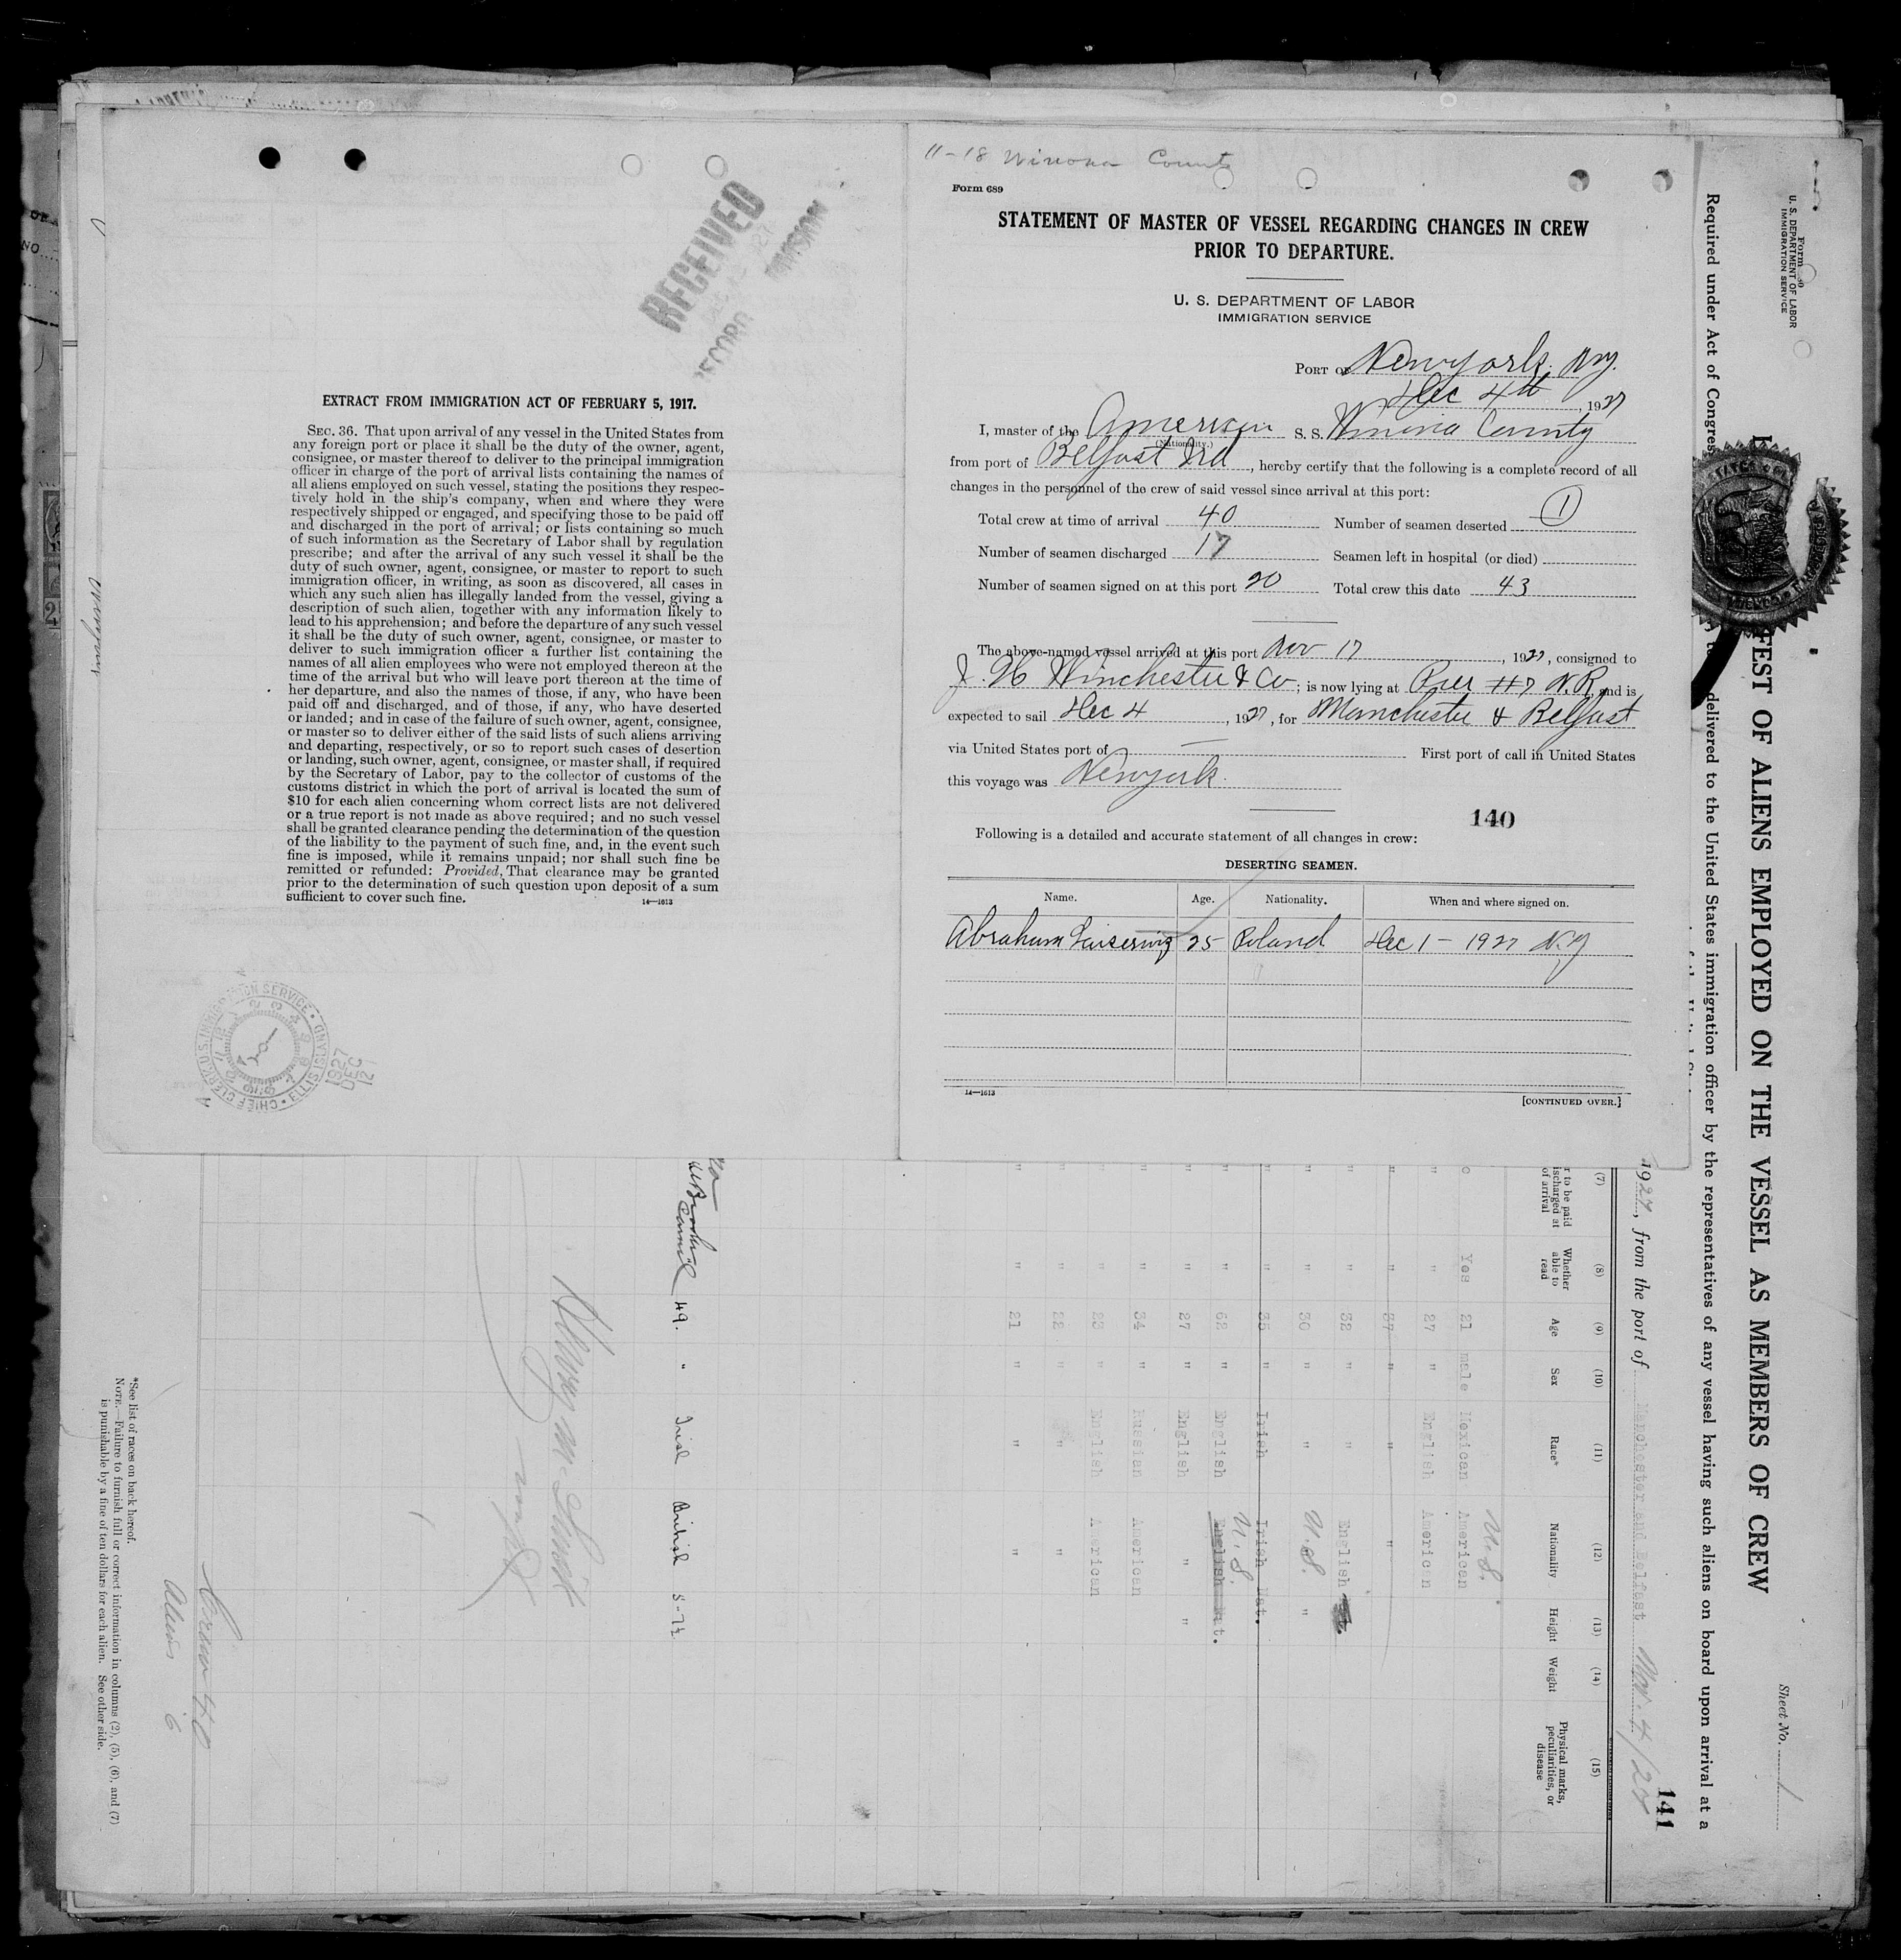 11-18 Winona County
Form 689
STATEMENT OF MASTER OF VESSEL REGARDING CHANGES IN CREW
PRIOR TO DEPARTURE.
U. S. DEPARTMENT OF LABOR
IMMIGRATION SERVICE
PORT OF New york. Ny.
Dec 4th, 1927
I, master of the American S. S. Winona County
(Nationality.)
from port of Belfast Ird, hereby certify that the following is a complete record of all
changes in the personnel of the crew of said vessel since arrival at this port:
Total crew at time of arrival 40 Number of seamen deserted 1
Number of seamen discharged 17 Seamen left in hospital (or died)
Number of seamen signed on at this port 20 Total crew this date 43
The above-named vessel arrived at this port Nov 17, 1927, consigned to
J. H Winchester & Co; is now lying at Pier #7 N.R. and is
expected to sail Dec 4, 1927, for Manchester & Belfast
via United States port of — First port of call in United States
this voyage was Newyork.
140
Following is a detailed and accurate statement of all changes in crew:
DESERTING SEAMEN.
Name. Age. Nationality. When and where signed on.
Abraham 25 Poland Dec 1 - 1927 N.Y
14—1613
[CONTINUED OVER.]
RECEIVED
RECORD DIVISION
EXTRACT FROM IMMIGRATION ACT OF FEBRUARY 5, 1917.
SEC. 36. That upon arrival of any vessel in the United States from
any foreign port or place it shall be the duty of the owner, agent,
consignee, or master thereof to deliver to the principal immigration
officer in charge of the port of arrival lists containing the names of
all aliens employed on such vessel, stating the positions they respec-
tively hold in the ship's company, when and where they were
respectively shipped or engaged, and specifying those to be paid off
and discharged in the port of arrival; or lists containing so much
of such information as the Secretary of Labor shall by regulation
prescribe; and after the arrival of any such vessel it shall be the
duty of such owner, agent, consignee, or master to report to such
immigration officer, in writing, as soon as discovered, all cases in
which any such alien has illegally landed from the vessel, giving a
description of such alien, together with any information likely to
lead to his apprehension; and before the departure of any such vessel
it shall be the duty of such owner, agent, consignee, or master to
deliver to such immigration officer a further list containing the
names of all alien employees who were not employed thereon at the
time of the arrival but who will leave port thereon at the time of
her departure, and also the names of those, if any, who have been
paid off and discharged, and of those, if any, who have deserted
or landed; and in case of the failure of such owner, agent, consignee,
or master so to deliver either of the said lists of such aliens arriving
and departing, respectively, or so to report such cases of desertion
or landing, such owner, agent, consignee, or master shall, if required
by the Secretary of Labor, pay to the collector of customs of the
customs district in which the port of arrival is located the sum of
$10 for each alien concerning whom correct lists are not delivered
or a true report is not made as above required; and no such vessel
shall be granted clearance pending the determination of the question
of the liability to the payment of such fine, and, in the event such
fine is imposed, while it remains unpaid; nor shall such fine be
remitted or refunded: Provided, That clearance may be granted
prior to the determination of such question upon deposit of a sum
sufficient to cover such fine.
14—1613
CHIEF CLERK U.S. IMMIGRATION SERVICE • ELLIS ISLAND
1927 DEC 12
U. S. DEPARTMENT OF LABOR
IMMIGRATION SERVICE
Sheet No. 1
FEST OF ALIENS EMPLOYED ON THE VESSEL AS MEMBERS OF CREW
Required under Act of Congress
delivered to the United States immigration officer by the representatives of any vessel having such aliens on board upon arrival at a
141
1927, from the port of Manchester and Belfast Nov. 4/27
(7) (8) (9) (10) (11) (12) (13) (14) (15)
r to be paid ischarged at of arrival
Whether able to read
Age
Sex
Race*
Nationality
Height
Weight
Physical marks, peculiarities, or disease
U.S.
o Yes 21 male Mexican American
" " 27 " English American
" " 37 " " "
" " 32 " " English
" " 30 " " U.S. "
" " 35 " Irish Irish Nat.
U.S.
" " 62 " English English Nat.
" " 27 " English " "
" " 34 " Russian American
" " 23 " English American
" " 22 " " "
" " 21 " " "
49. " Irish British 5-7½
Crew 40
Aliens 6
*See list of races on back hereof.
NOTE.—Failure to furnish full or correct information in columns (2), (5), (6), and (7)
is punishable by a fine of ten dollars for each alien. See other side.